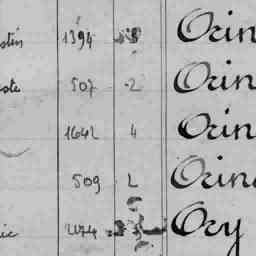 stin 1394 Orin
ste 507 2 Orin
1642 4 Orin
509 2 Orin
ic 2174 Ory